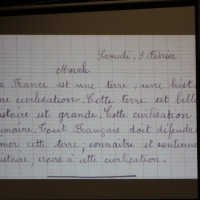 Samedi, 9 Février
Morale
a France est une terre, une hist
ne civilisation. Cette terre est bell
istoire est grande. Cette civilisation
umaine. Tout Français doit défendre
imer cette terre; connaître et continue
istoire; croire à cette civilisation.